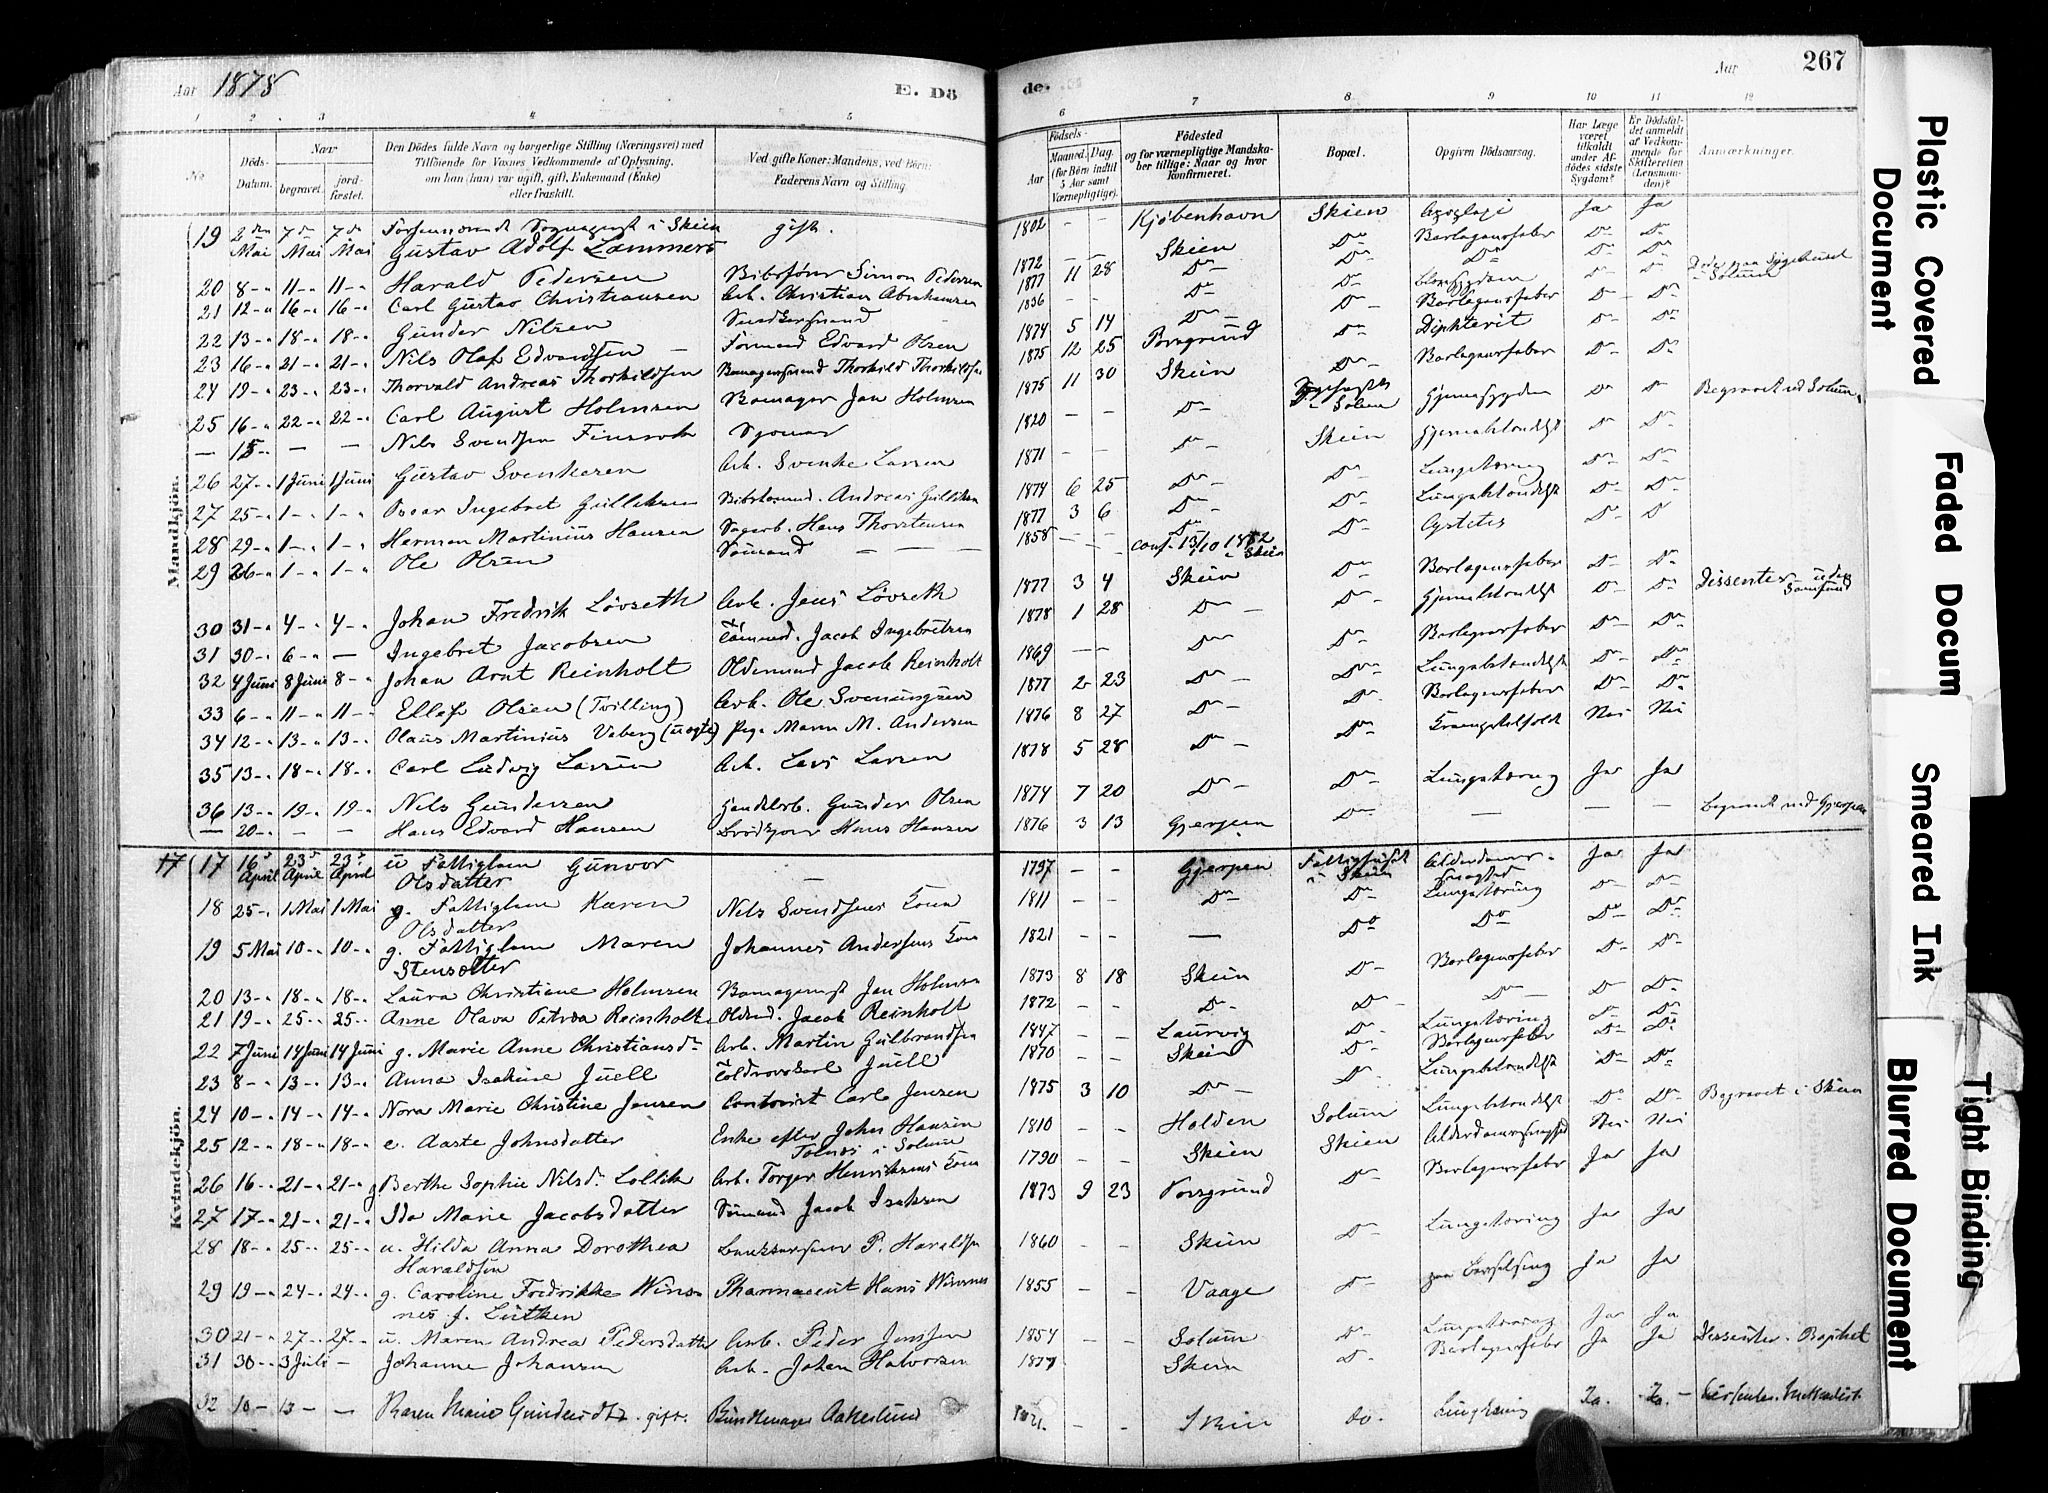 Aar 1878
E. Dö
de.
Aar
267
1 2 3 4 5 6 7 8 9 10 11 12
No
Döds-Datum.
Naar
begravet.
jordfæstet.
Den Dödes fulde Navn og borgerlige Stilling (Næringsvei) med
Tilföiende for Voxnes Vedkommende af Oplysning,
om han (hun) var ugift, gift, Enkemand (Enke)
eller fraskilt.
Ved gifte Koner: Mandens, ved Börn:
Faderens Navn og Stilling.
Födsels-
Aar
Maaned. Dag.
(for Börn indtil
5 Aar samt
Værnepligtige).
Födested
og for værnepligtige Mandskaber
tillige: Naar og hvor
konfirmeret.
Bopæl.
Opgiven Dödsaarsag.
Har Læge
været
tilkaldt
under Afdödes
sidste
Sygdom?
Er Dödsfaldet
anmeldt
af Vedkommende
for
Skifteretten
(Lensmanden)?
Anmærkninger.
Mandkjön.
19 2den Mai 7de Mai 7de Mai Sogneprest i Skien Gustav Adolf Lammers gift. 1802 – – Kjøbenhavn Skien Apoplexi Ja Ja
20 8 11 11 Harald Pedersen Simon Pedersen 1872 – – Skien Do Barlagensfeber Do Do
21 12 16 16 Carl Gustav Christiansen Arb. Christian Abrahamsen 1877 11 28 Do Do Do Do Do
22 13 18 18 Gunder Nilsen 1836 – – Do Do Do Do
23 16 21 21 Nils Olaf Edvardsen Sömand Edvard Olsen 1874 5 14 Do Do Barlagensfeber Do Do
24 19 23 23 Thorvald Andreas Thorkildsen Bomagersvend Thorkild Thorkildsen 1875 12 25 Porsgrund Do Diphterit Do Do
25 16 22 22 Carl August Holmsen Bomager Jan Holmsen 1875 11 30 Skien Do Barlagensfeber Do Do
– 15 – – Nils Svendsen 1820 – – Do i Solum Hjernesygdom Do Do Begravet ved Solum
26 27 1 Juni 1 Juni Gustav Svenkesen Arb. Svenke Larsen 1871 – – Do Skien Hjernebetændelse Do Do
27 25 1 1 Oscar Ingebret Gulliksen Andreas Gulliksen 1874 6 25 Do Do Lungetæring Do Do
28 29 1 1 Herman Martinius Hansen Sagarb. Hans Thorstensen 1877 3 6 Do Do Lungebetændelse Do Do
29 26 1 1 Ole Olsen Sömand – – – 1858 – – Do Conf. 13/10 1872 i Skien Do Do Do
30 31 4 4 Johan Fredrik Lövseth Arb. Jens Lövseth 1877 3 4 Skien Do Barlagensfeber Do Do
31 30 6 – Ingebret Jacobsen Tömmd. Jacob Ingebretsen 1878 1 28 Do Do Hjernebetændelse Do Do Dissenter uden Samfund
32 4 Juni 8 Juni 8 Johan Arnt Reinholt Oldermand Jacob Reinholt 1869 – – Do Do Barlagensfeber Do Do
33 6 11 11 Ellef Olsen (Tvilling) Arb. Ole Svenungsen 1877 2 23 Do Do Lungebetændelse Do Do
34 12 13 13 Olaus Martinius Vaberg (uægte) Pige Maren M. Andersen 1876 8 27 Do Do Barlagensfeber Do Do
35 13 18 18 Carl Ludvig Larsen Arb. Lars Larsen 1878 5 28 Do Do Nei Nei
36 13 19 19 Nils Gundersen Gunder Olsen 1874 7 20 Do Do Lungetæring Ja Ja
– 20 – – Hans Edvard Hansen Hans Hansen 1876 3 13 Gjerpen Do – – – begravet ved Gjerpen
Kvindekjön.
17 17 16 April 23 April 23 April u Fattiglem Gunvor Olsdatter – 1797 – – Gjerpen i Skien Alderdoms- Ja Ja
18 25 1 Mai 1 Mai g. Fattiglem Karen Olsdatter Nils Svendsens Kone 1811 – – Do Do Lungetæring Do Do
19 5 Mai 10 10 g. Fattiglem Maren Johannes Andersens Kone 1821 – – – Do Do Do Do
20 13 18 18 Laura Christiane Holmsen Jan Holmsen 1873 8 18 Skien Do Barlagensfeber Do Do
21 19 25 25 Anne Olava Petrea Reinholt Jacob Reinholt 1872 – – Do Do Do Do Do
22 7 Juni 14 Juni 14 Juni g. Marie Anne Christiansd. Arb. Martin Gulbrandsen 1847 – – Laurvig Do Lungetæring Do Do
23 8 13 13 Anna Isakine Juell Juell 1870 – – Skien Do Barlagensfeber Do Do
24 10 14 14 Nora Marie Christine Jensen Contorist Carl Jensen 1875 3 10 Do Do Lungebetændelse Do Do
25 12 18 18 e. Aaste Johnsdatter Enke efter John Hansen i Solum 1810 – – Holden Solum Lungebetændelse Do Do Begravet i Skien
26 16 21 21 g Berthe Sophie Nilsd. Lollik Arb. Torger Henriksens Kone 1790 – – Skien Skien Alderdomssvaghed Nei Nei
27 17 21 21 Ida Marie Jacobsdatter Sömand Jacob Isaksen 1873 9 23 Porsgrund Do Barlagensfeber Ja Ja
28 18 25 25 u. Hilda Anna Dorothea Haraldsen P. Haraldsen 1860 – – Skien Do Lungetæring Ja Ja
29 19 24 24 g. Caroline Fredrikke Winsnes f. Lütken Pharmaceut Hans Winsnes 1855 – – Vaage Do Ja Ja
30 21 27 27 u. Maren Andrea Pedersdatter Arb. Peder Jenssen 1854 – – Solum Do Lungetæring Ja Ja
31 30 3 Juli – Johanne Johansen Arb. Johan Halvorsen 1877 Skien Do Barlagensfeber Ja Ja Dissenter. Baptist
32 10 13 – – Karen Marie Gundersdtr. gift. Bundtmager Aakeslund 1821. – – Skien do. Ja. Ja. Dissenter. Methodist
Plastic Covered Document
Faded Docum
Smeared Ink
Blurred Document
Tight Binding